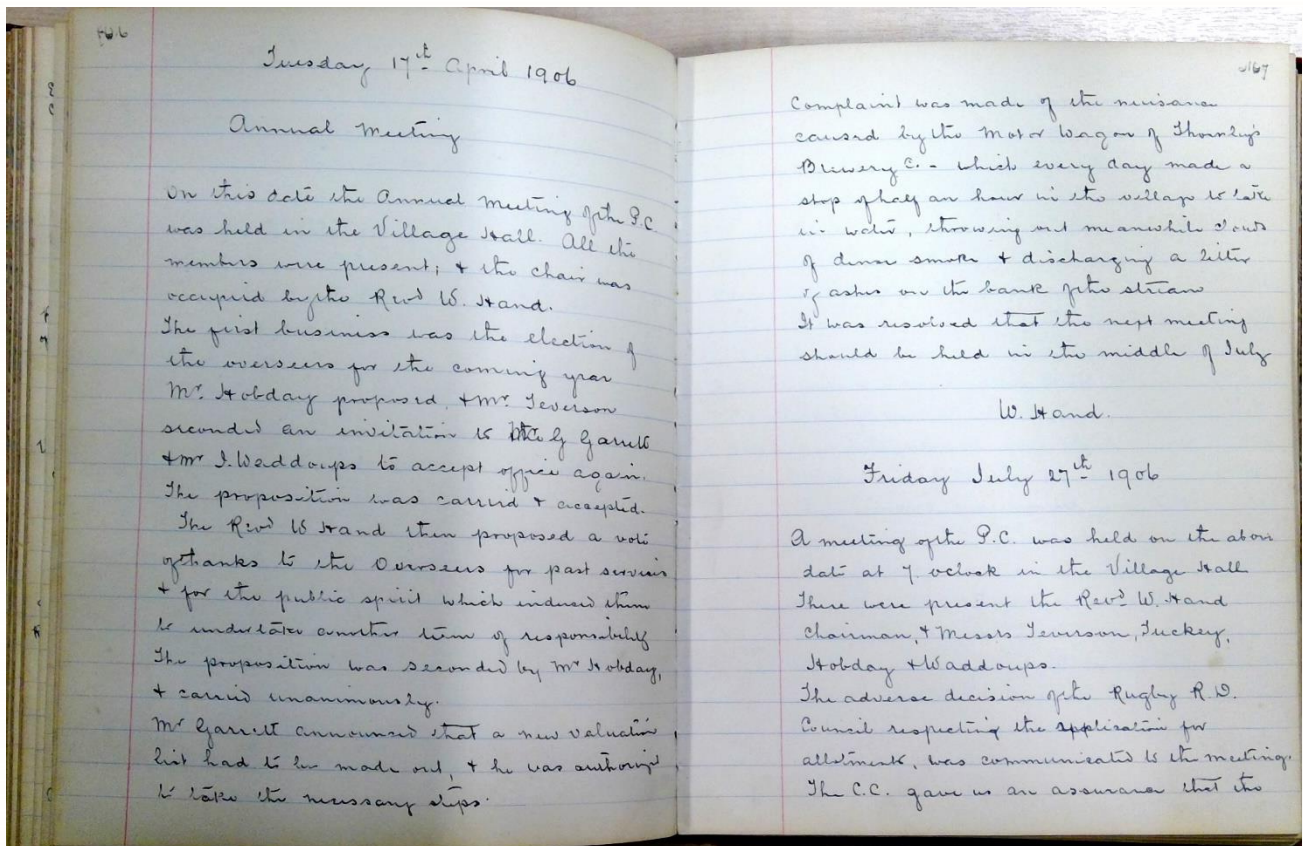 Tuesday 17th April 1906
Annual Meeting
On this date the Annual Meeting of the P.C.
was held in the Village Hall. All the
members were present; & the chair was
occupied by the Revd W. Hand.
The first business was the election of
the overseers for the coming year
Mr. Hobday proposed, & Mr. Teverson
seconded an invitation to G Garrett
& Mr J. Waddoups to accept office again.
The proposition was carried & accepted.
The Revd W Hand then proposed a vote
of thanks to the Overseers for past services
& for the public spirit which induced them
to undertake another term of responsibility
The proposition was seconded by Mr Hobday,
& carried unanimously.
Mr Garrett announced that a new valuation
list had to be made out, & he was authorized
to take the necessary steps.
167
Complaint was made of the nuisance
caused by the Motor Wagon of Thornley's
Brewery C. - which every day made a
stop of half an hour in the village to take
in water, throwing out meanwhile clouds
of dense smoke & discharging a litter
of ashes on the bank of the stream
It was resolved that the next meeting
should be held in the middle of July
W. Hand.
Friday July 27th 1906
A meeting of the P.C. was held on the above
date at 7 oclock in the Village Hall
There were present the Revd W. Hand
Chairman, & Messrs Teverson, Tuckey,
Hobday & Waddoups.
The adverse decision of the Rugby R.D.
Council respecting the application for
allotments, was communicated to the meeting.
The C.C. gave us an assurance that the